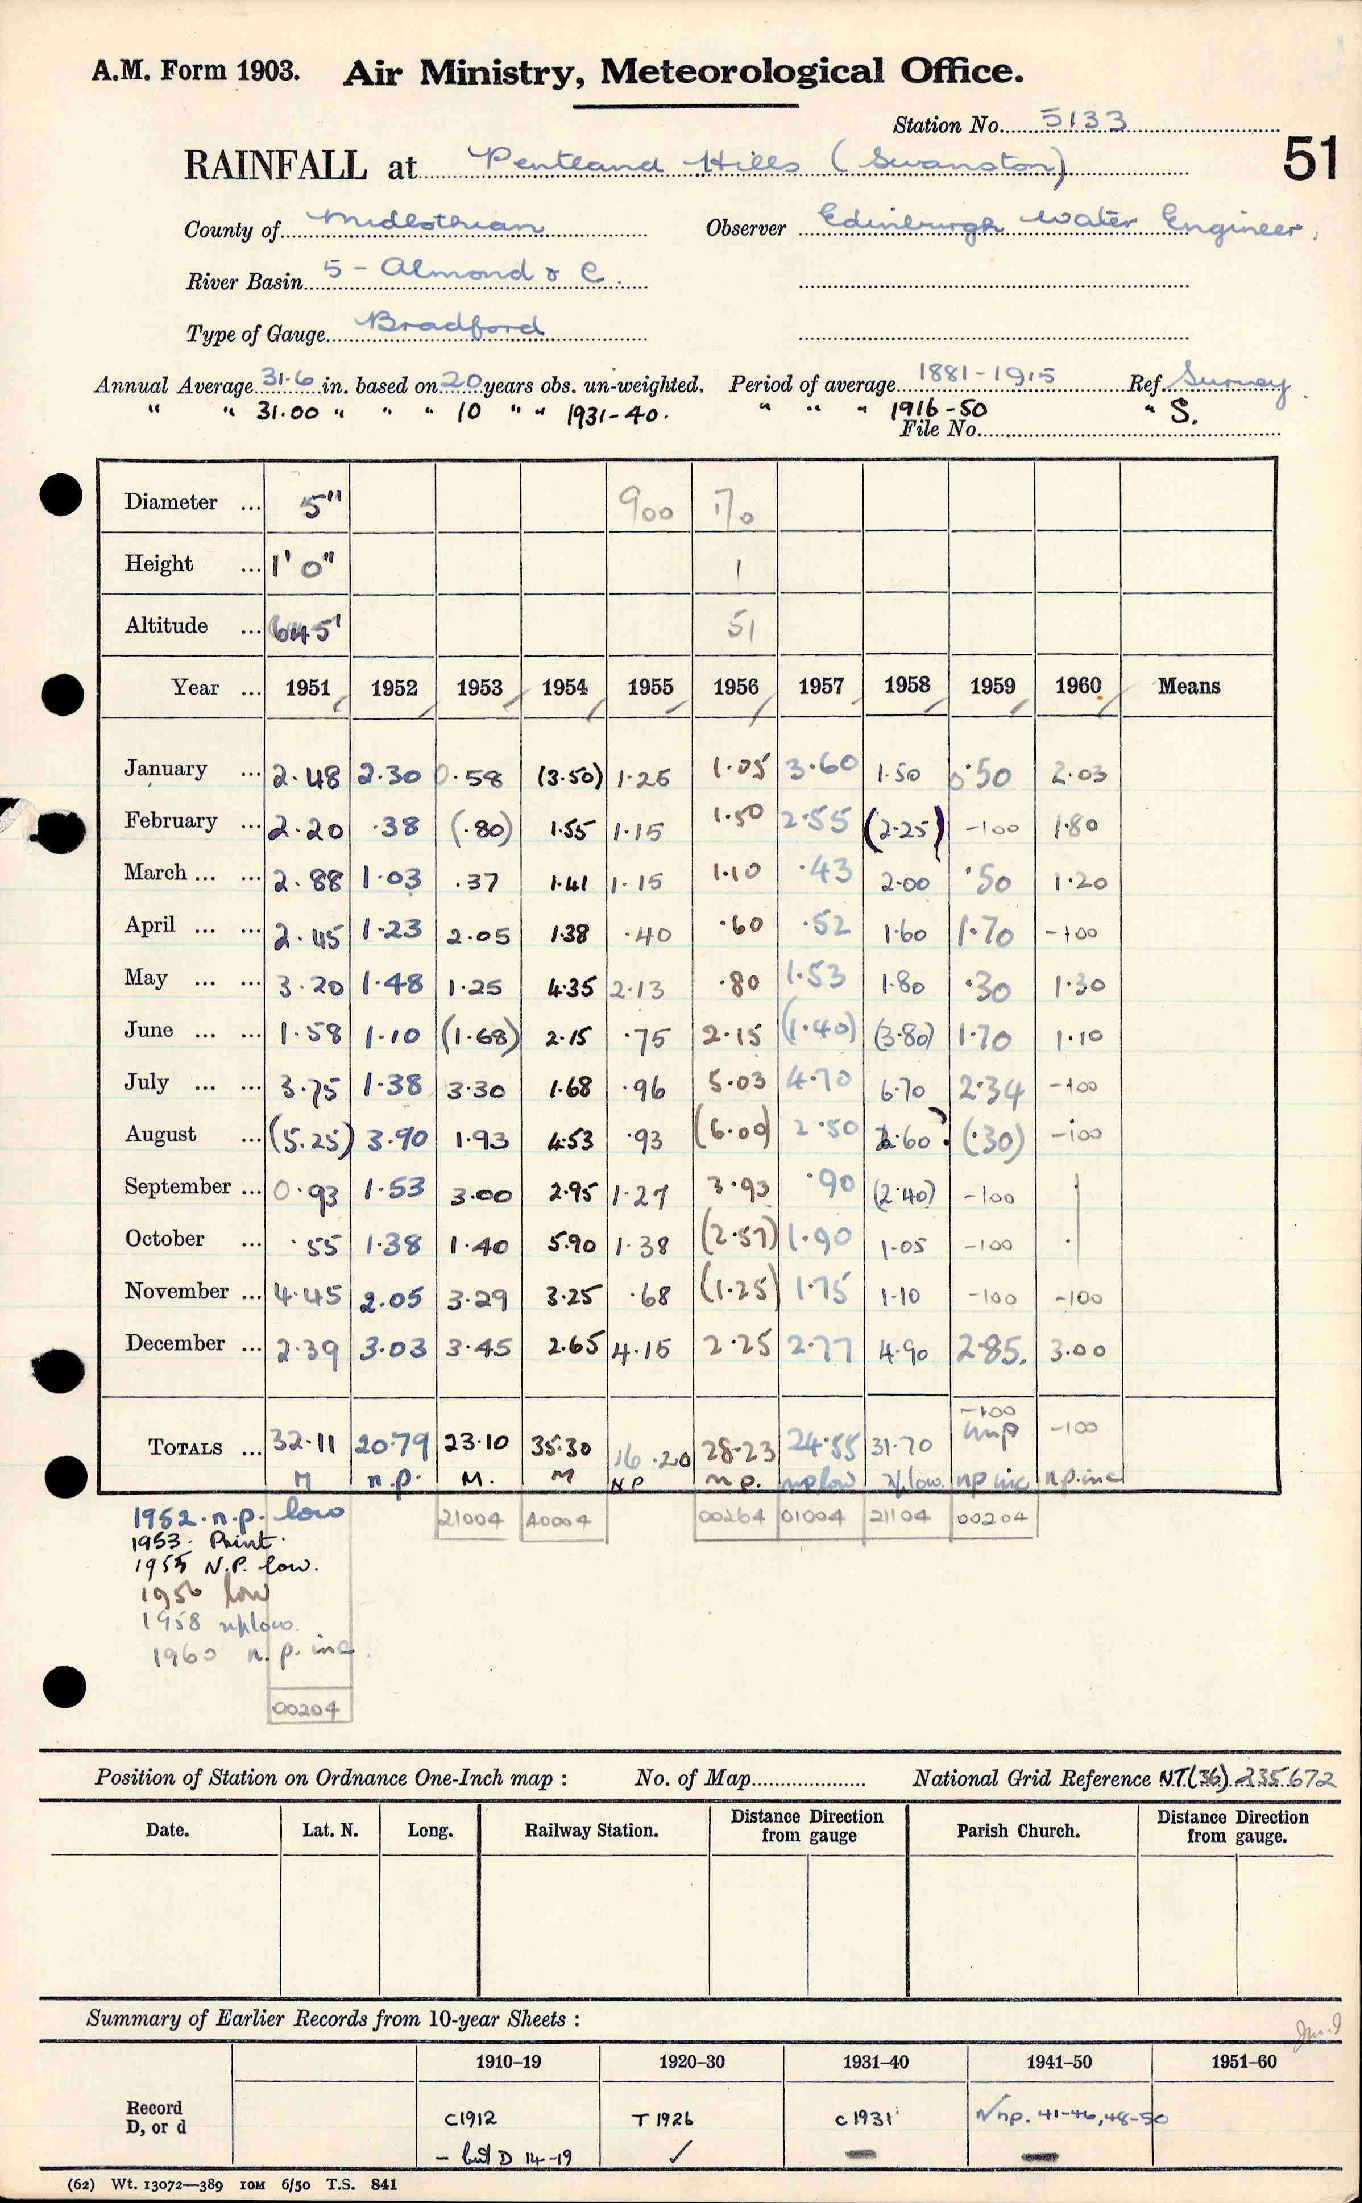 A.M. Form 1903. Air Ministry, Meteorological Office.
Station No. 5133
51
RAINFALL at Pentland Hills (Swanston)
County of Midlothian Observer Edinburgh Water Engineer.
River Basin 5 - Almond & C.
Type of Gauge Bradford
Annual Average 31.6 in. based on 20 years obs. un-weighted. Period of average 1881-1915 Ref. Survey
" " 31.00 " " " 10 " " 1931-40. " " " 1916-50 " S.
File No.
Diameter ... 5" 900 170
Height ... 1' 0" 1
Altitude ... 645' 51
Year ... 1951 1952 1953 1954 1955 1956 1957 1958 1959 1960 Means
January ... 2.48 2.30 0.58 (3.50) 1.25 1.05 3.60 1.50 0.50 2.03
February ... 2.20 .38 (.80) 1.55 1.15 1.50 2.55 (2.25) -100 1.80
March ... ... 2.88 1.03 .37 1.41 1.15 1.10 .43 2.00 .50 1.20
April ... ... 2.45 1.23 2.05 1.38 .40 .60 .52 1.60 1.70 -100
May ... ... 3.20 1.48 1.25 4.35 2.13 .80 1.53 1.80 .30 1.30
June ... ... 1.58 1.10 (1.68) 2.15 .75 2.15 (1.40) (3.80) 1.70 1.10
July ... ... 3.75 1.38 3.30 1.68 .96 5.03 4.70 6.70 2.34 -100
August ... (5.25) 3.90 1.93 4.53 .93 (6.00) 2.50 2.60? (.30) -100
September ... 0.93 1.53 3.00 2.95 1.27 3.93 .90 (2.40) -100
October ... .55 1.38 1.40 5.90 1.38 (2.57) 1.90 1.05 -100
November ... 4.45 2.05 3.29 3.25 .68 (1.25) 1.75 1.10 -100 -100
December ... 2.39 3.03 3.45 2.65 4.15 2.25 2.77 4.90 2.85. 3.00
-100
TOTALS ... 32.11 20.79 23.10 35.30 16.20 28.23 24.55 31.70 -100
M n.p. M. M NP n p. np low np low. np inc n.p. inc
1952. n.p. low 21004 A0004 00264 01004 21104 00204
1953. Print.
1955 N.P. low.
1956 low
1958 np low.
1960 n.p. inc.
00204
Position of Station on Ordnance One-Inch map : No. of Map National Grid Reference N.T.(36) 235672
Date. Lat. N. Long. Railway Station. Distance Direction from gauge Parish Church. Distance Direction from gauge.
Summary of Earlier Records from 10-year Sheets :
1910-19 1920-30 1931-40 1941-50 1951-60
Record D, or d C1912 T 1926 C 1931 np. 41-46, 48-50
- but D 14-19 ✓ - -
(62) Wt. 13072—389 10M 6/50 T.S. 841